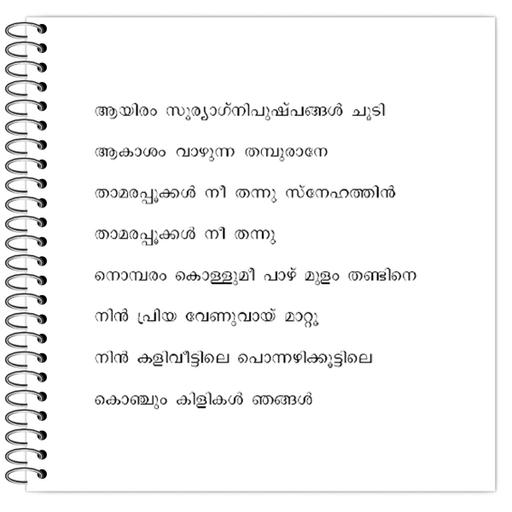 ആയിരം സൂര്യാഗ്നിപുഷ്പങ്ങൾ ചൂടി
ആകാശം വാഴുന്ന തമ്പുരാനേ
താമരപ്പൂക്കൾ നീ തന്നു സ്നേഹത്തിൻ
താമരപ്പൂക്കൾ നീ തന്നു
നൊമ്പരം കൊള്ളുമീ പാഴ് മുളം തണ്ടിനെ
നിൻ പ്രിയ വേണുവായ് മാറ്റൂ
നിൻ കളിവീട്ടിലെ പൊന്നഴിക്കൂട്ടിലെ
കൊഞ്ചും കിളികൾ ഞങ്ങൾ